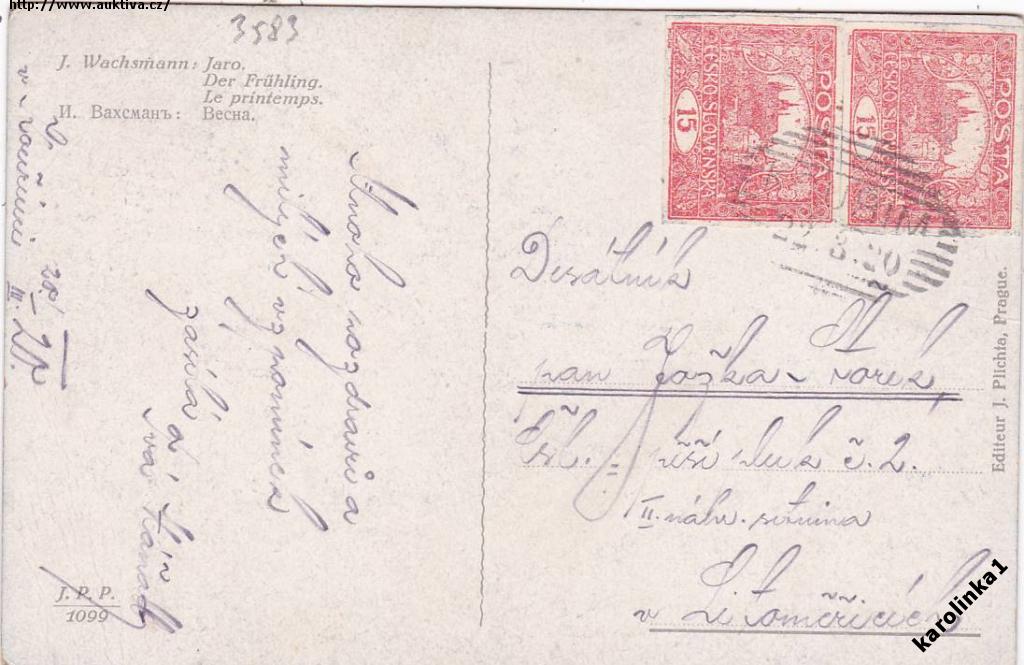 http://www.auktiva.cz/
3583
J. Wachsmann: Jaro.
Der Frühling.
Le printemps.
И. Вахсманъ: Весна.
28/III. 20.
Mnoho pozdravů a
milých vzpomínek
zasílá
J. P. P.
1099
ČESKO-SLOVENSKÁ
POŠTA
15
ČESKO-SLOVENSKÁ
POŠTA
15
Desátník
pan Jožka
Čsl. pěší pluk č. 2.
II. náhr. setnina
v Litoměřicích
Editeur J. Plichta, Prague.
karolinka1